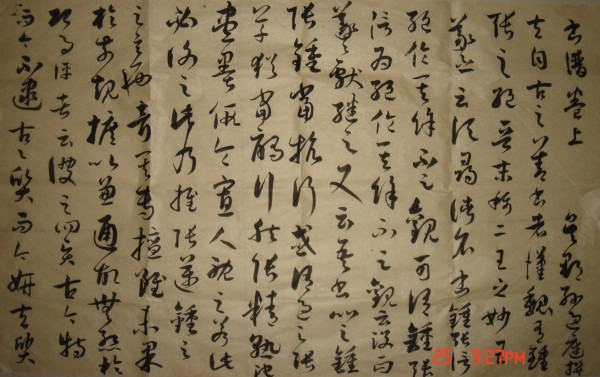 書譜卷上 吳郡孫過庭撰
夫自古之善書者漢魏有鍾
張之絕晉末稱二王之妙王
羲之云頃尋諸名書鍾張信
絕倫其餘不足觀可謂鍾張
信為絕倫其餘不足觀云沒而
羲獻繼之又云吾書比之鍾
張鍾當抗行或謂過之張
草猶當雁行然張精熟池水
盡墨假令寡人耽之若此
未必謝之此乃推張邁鍾
之意也考其專擅雖未果
於前規摭以兼通故無慚於
即事評者云彼之四賢古今特
而今不逮古古質而今妍夫質
25 9:27PM